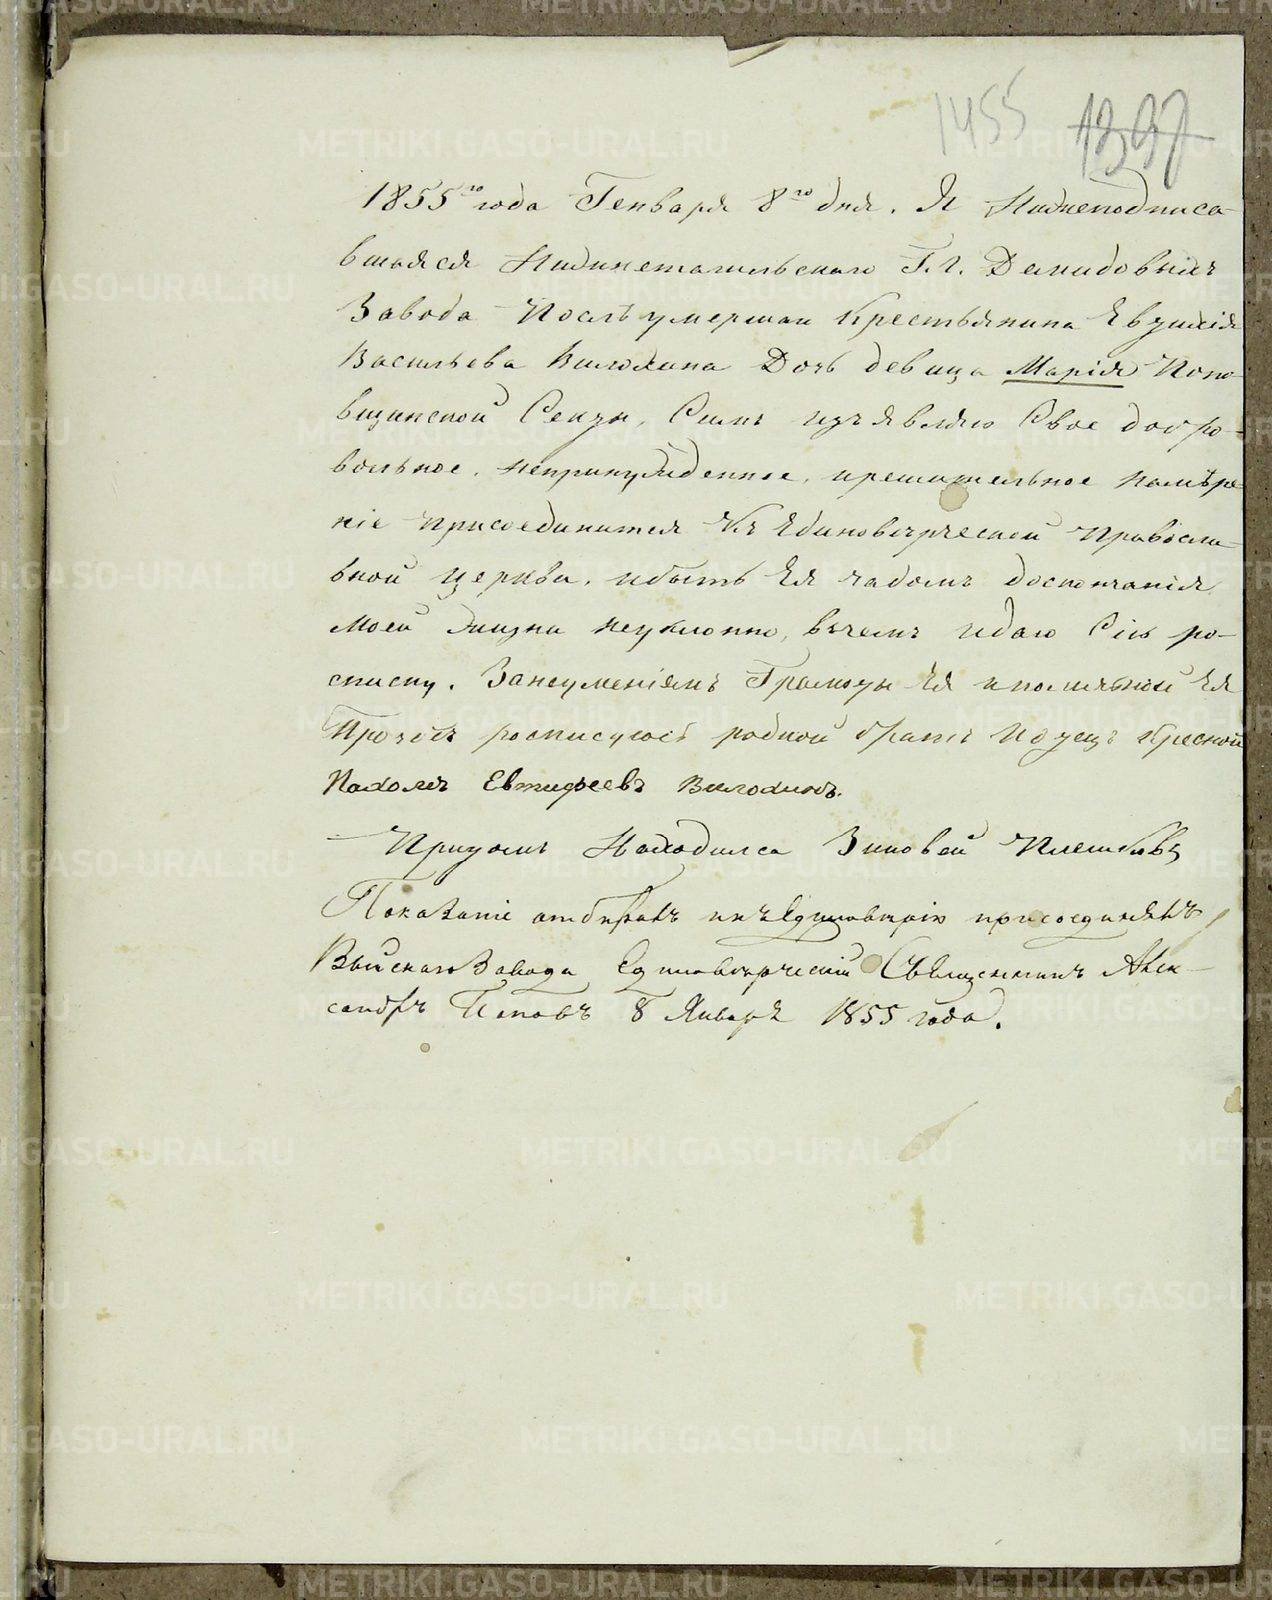 1455 1397
1855го года Генваря 8го дня. Я Нижеподписа-
вшаяся Нижнетагильскаго Г.г. Демидовыхъ
Завода Послѣ умершаи Крестьянина
Васильева Дочь девица Марія Попо-
вщинской Секты, Симъ изъявляю Свое добро-
вольное, непринужденное, ирешительное намѣре-
ніе присоединится Къ Единоверческой Правосла-
вной церкви, ибыть Ея чадомъ доскончанія
моей жизни неуклонно, вчемъ идаю Сію ро-
списку. Занеуменіямъ Грамоты Ея Ея
Прозбе росписуюсь родной братъ
Пахомъ Евтифеевъ Вилохинъ.
Находился Зиновей
Показаніе отбиралъ икъ Единоверію присоединялъ
Выйскаго Завода Единоверческій Священникъ Алек-
сандръ Поповъ 8 Января 1855 года.
METRIKI.GASO-URAL.RU